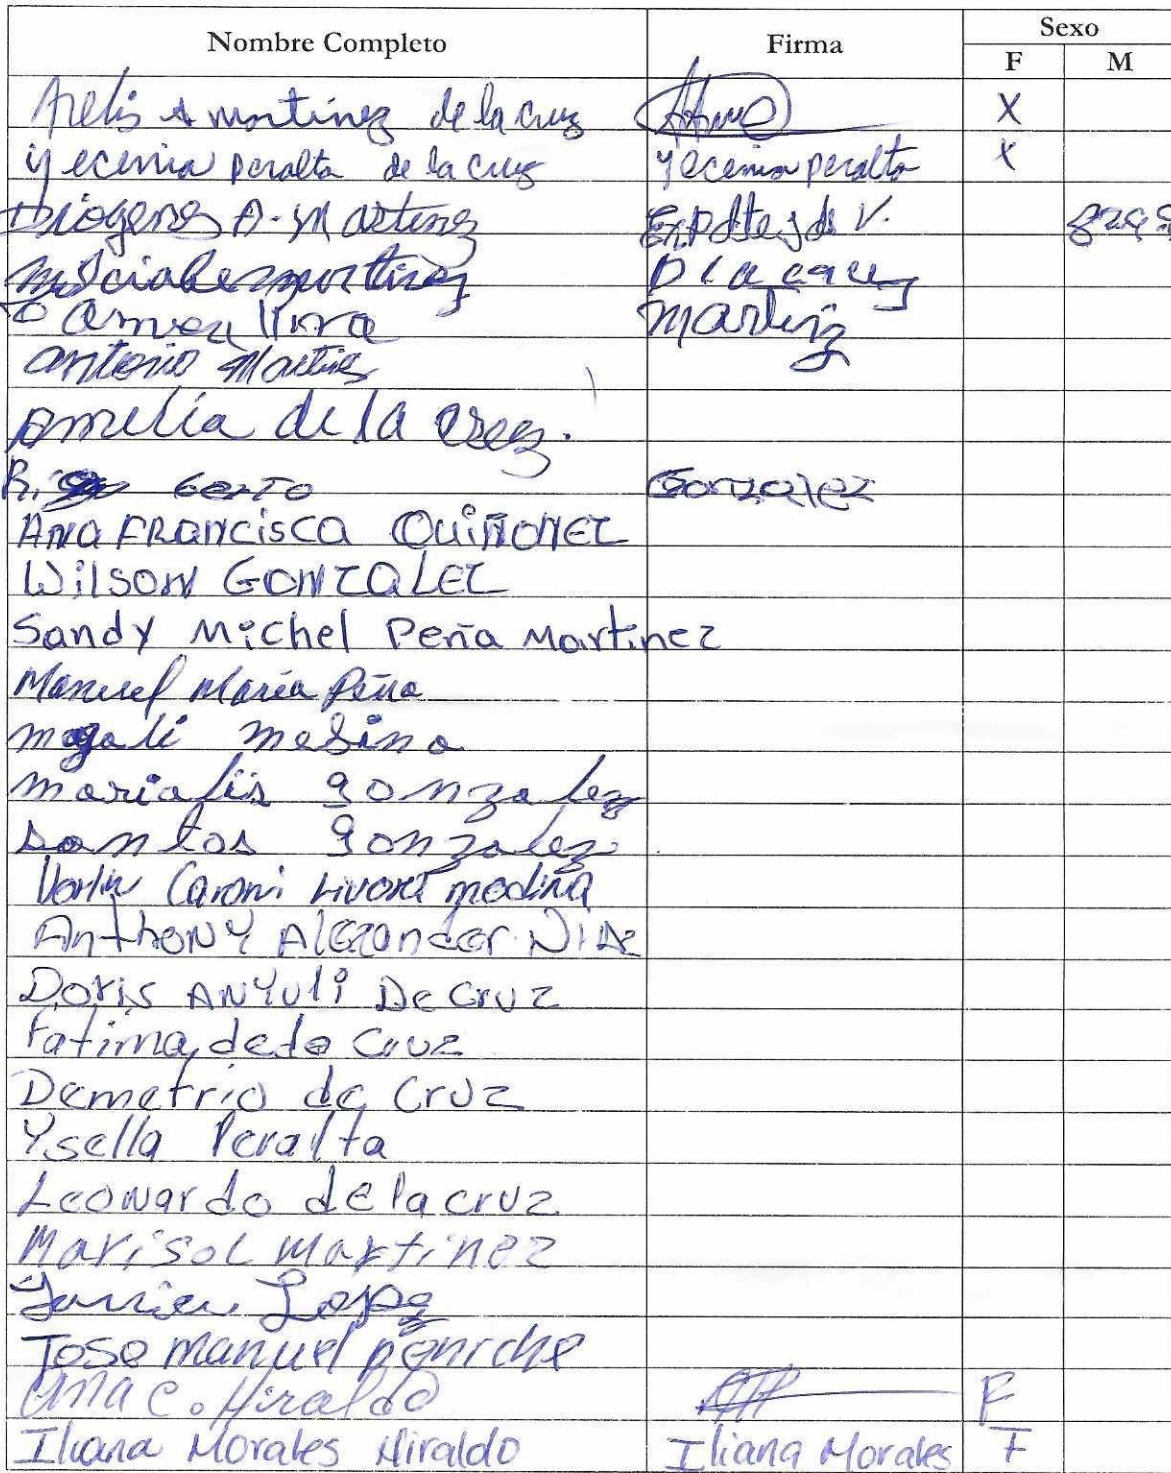 Nombre Completo Firma Sexo
F M
Arelis A martinez de la cruz X
yecenia peralta de la cruz yecenia peralta X
Diogenes A. Martinez
martinez D la cruz
Martinz
antonio Martinez
Amelia de la Cruz.
Gonzalez
Ana FRANCISCA QUIÑONEZ
Wilson GONZALEZ
Sandy Michel Peña Martinez
Manuel Maria Peña
magali mesina
marialis gonzalez
santos gonzalez
Caroni medina
Anthony Alezander
Doris ANYuli De Cruz
Fatima de la Cruz
Demetrio de Cruz
Ysella Peralta
Leonardo de la cruz
Marisol Martinez
Lopez
Jose manuel peniche
ana c. Hiraldo F
Iliana Morales Hiraldo Iliana Morales F